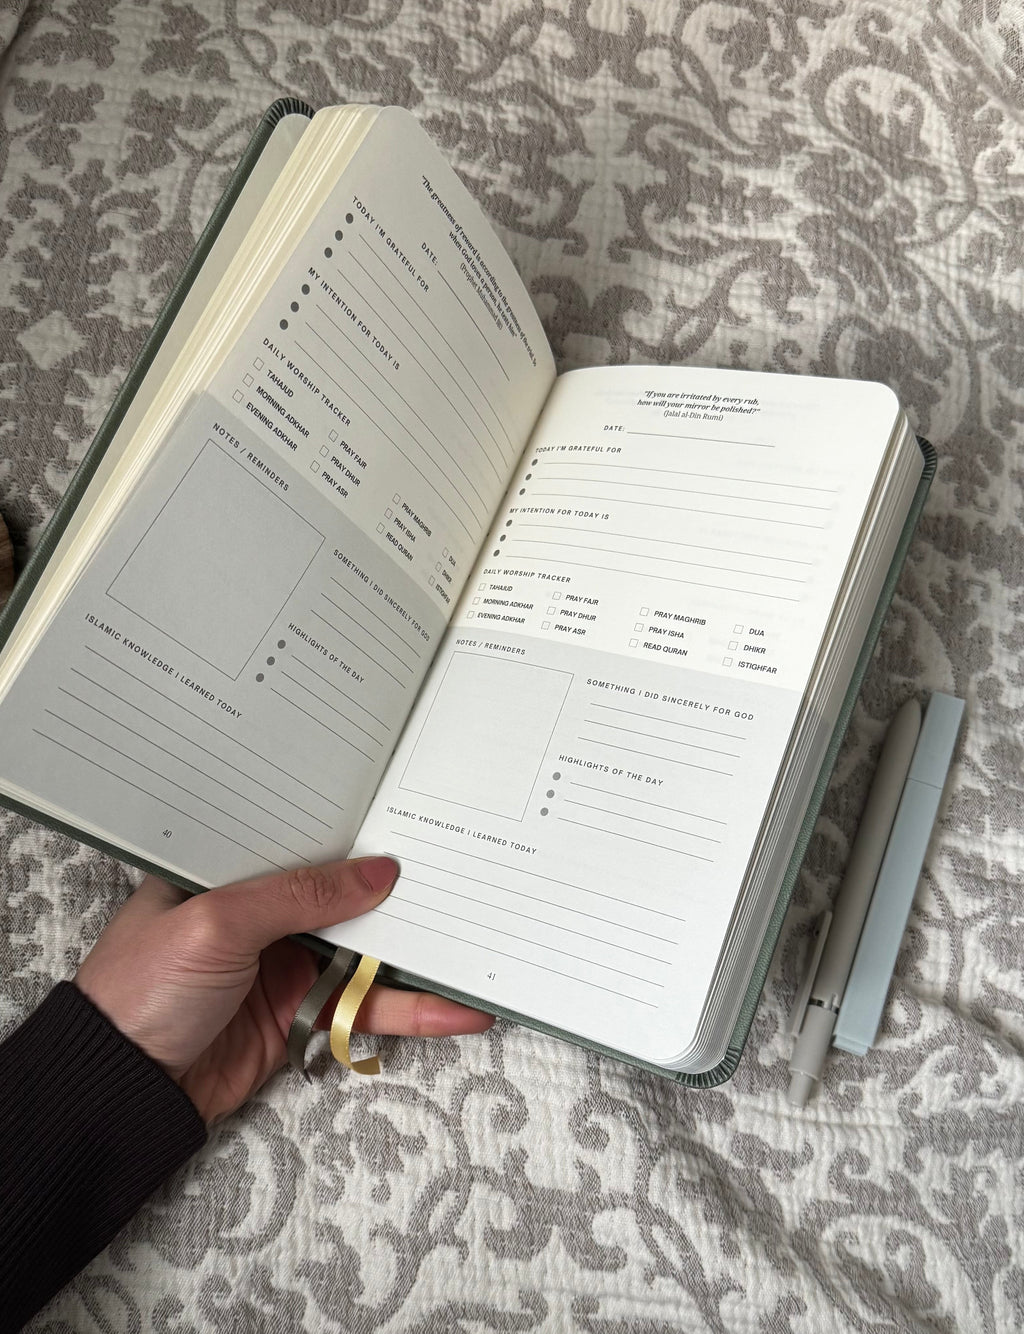 "The greatness of reward is according to the greatness of the trial. So
when God loves a person, he tests him"
(Prophet Muhammad ﷺ)
DATE:
TODAY I'M GRATEFUL FOR
MY INTENTION FOR TODAY IS
DAILY WORSHIP TRACKER
TAHAJUD
MORNING ADKHAR
EVENING ADKHAR
PRAY FAJR
PRAY DHUR
PRAY ASR
PRAY MAGHRIB
PRAY ISHA
READ QURAN
DUA
DHIKR
ISTIGHFAR
NOTES / REMINDERS
SOMETHING I DID SINCERELY FOR GOD
HIGHLIGHTS OF THE DAY
ISLAMIC KNOWLEDGE I LEARNED TODAY
40
"If you are irritated by every rub,
how will your mirror be polished?"
(Jalal al-Din Rumi)
DATE:
TODAY I'M GRATEFUL FOR
MY INTENTION FOR TODAY IS
DAILY WORSHIP TRACKER
TAHAJUD
MORNING ADKHAR
EVENING ADKHAR
PRAY FAJR
PRAY DHUR
PRAY ASR
PRAY MAGHRIB
PRAY ISHA
READ QURAN
DUA
DHIKR
ISTIGHFAR
NOTES / REMINDERS
SOMETHING I DID SINCERELY FOR GOD
HIGHLIGHTS OF THE DAY
ISLAMIC KNOWLEDGE I LEARNED TODAY
41